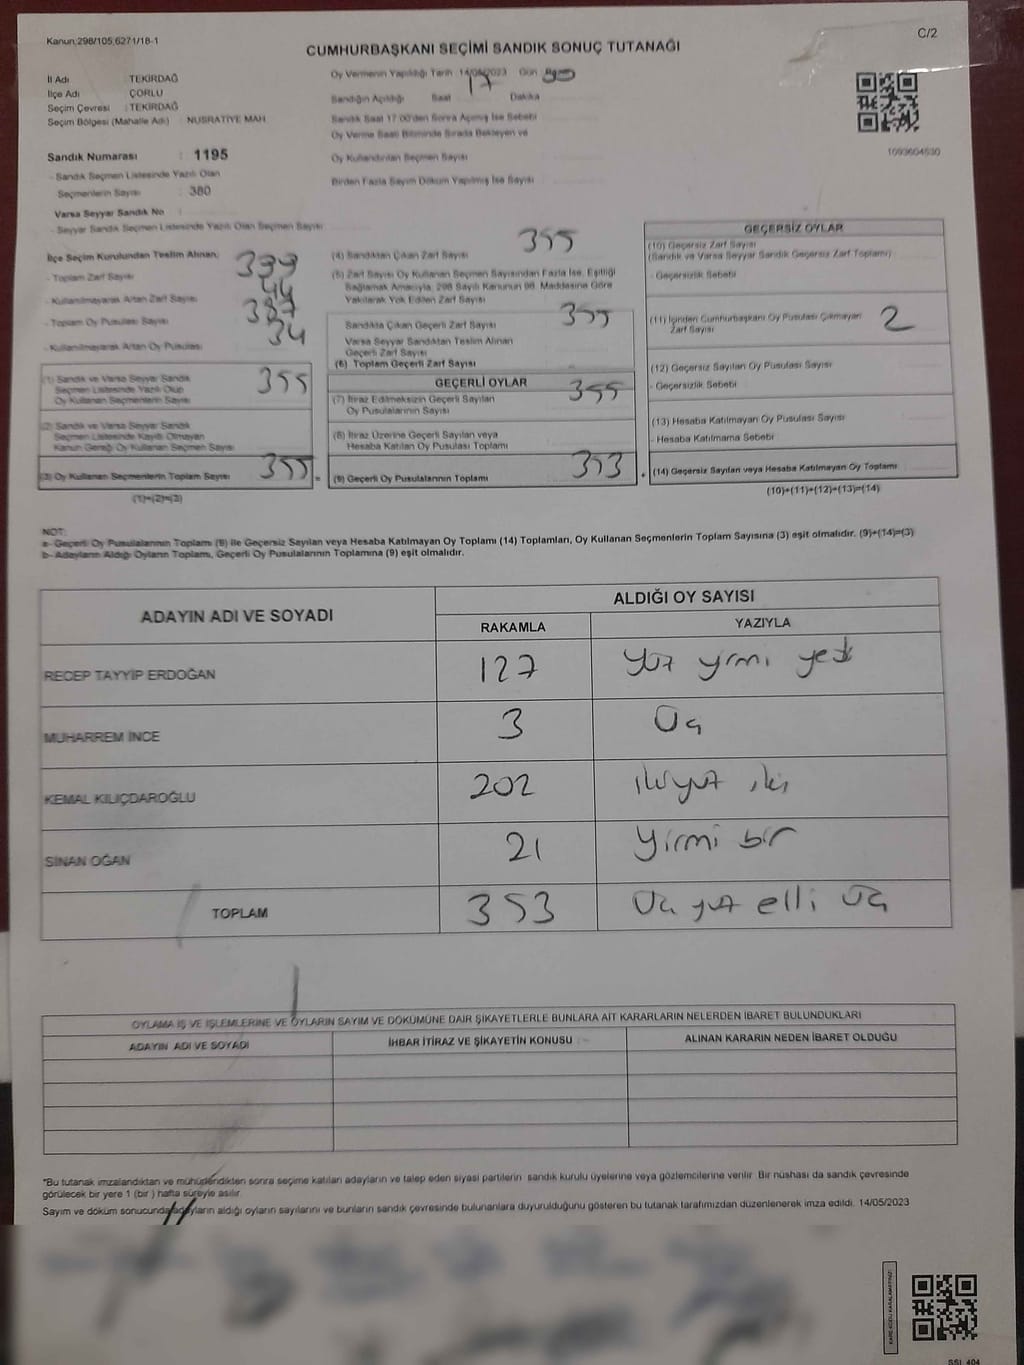 Kanun:298/105,6271/18-1
C/2
CUMHURBAŞKANI SEÇİMİ SANDIK SONUÇ TUTANAĞI
İl Adı TEKİRDAĞ
İlçe Adı ÇORLU
Seçim Çevresi : TEKİRDAĞ
Seçim Bölgesi (Mahalle Adı) NUSRATİYE MAH
Sandık Numarası : 1195
- Sandık Seçmen Listesinde Yazılı Olan
Seçmenlerin Sayısı : 380
Varsa Seyyar Sandık No
- Seyyar Sandık Seçmen Listesinde Yazılı Olan Seçmen Sayısı
Oy Vermenin Yapıldığı Tarih 14/05/2023 Gün
Sandığın Açıldığı Saat 17 Dakika
Sandık Saat 17:00'den Sonra Açılmış İse Sebebi
Oy Verme Saati Bitiminde Sırada Bekleyen ve
Oy Kullandırılan Seçmen Sayısı
Birden Fazla Sayım Döküm Yapılmış İse Sayısı
1093604530
İlçe Seçim Kurulundan Teslim Alınan;
- Toplam Zarf Sayısı 399
- Kullanılmayarak Artan Zarf Sayısı 44
- Toplam Oy Pusulası Sayısı 387
- Kullanılmayarak Artan Oy Pusulası 34
(1) Sandık ve Varsa Seyyar Sandık
Seçmen Listesinde Yazılı Olup
Oy Kullanan Seçmenlerin Sayısı 355
(2) Sandık ve Varsa Seyyar Sandık
Seçmen Listesinde Kayıtlı Olmayan
Kanun Gereği Oy Kullanan Seçmen Sayısı
(3) Oy Kullanan Seçmenlerin Toplam Sayısı 355 =
(1)+(2)=(3)
(4) Sandıktan Çıkan Zarf Sayısı 355
(5) Zarf Sayısı Oy Kullanan Seçmen Sayısından Fazla İse, Eşitliği
Sağlamak Amacıyla, 298 Sayılı Kanunun 98. Maddesine Göre
Yakılarak Yok Edilen Zarf Sayısı
Sandıkta Çıkan Geçerli Zarf Sayısı 355
Varsa Seyyar Sandıktan Teslim Alınan
Geçerli Zarf Sayısı
(6) Toplam Geçerli Zarf Sayısı
GEÇERLİ OYLAR
(7) İtiraz Edilmeksizin Geçerli Sayılan
Oy Pusulalarının Sayısı 355
(8) İtiraz Üzerine Geçerli Sayılan veya
Hesaba Katılan Oy Pusulası Toplamı
(9) Geçerli Oy Pusulalarının Toplamı 353 +
GEÇERSİZ OYLAR
(10) Geçersiz Zarf Sayısı
(Sandık ve Varsa Seyyar Sandık Geçersiz Zarf Toplamı)
- Geçersizlik Sebebi
(11) İçinden Cumhurbaşkanı Oy Pusulası Çıkmayan
Zarf Sayısı 2
(12) Geçersiz Sayılan Oy Pusulası Sayısı
- Geçersizlik Sebebi
(13) Hesaba Katılmayan Oy Pusulası Sayısı
- Hesaba Katılmama Sebebi
(14) Geçersiz Sayılan veya Hesaba Katılmayan Oy Toplamı
(10)+(11)+(12)+(13)=(14)
NOT:
a- Geçerli Oy Pusulalarının Toplamı (9) ile Geçersiz Sayılan veya Hesaba Katılmayan Oy Toplamı (14) Toplamları, Oy Kullanan Seçmenlerin Toplam Sayısına (3) eşit olmalıdır. (9)+(14)=(3)
b- Adayların Aldığı Oyların Toplamı, Geçerli Oy Pusulalarının Toplamına (9) eşit olmalıdır.
ADAYIN ADI VE SOYADI
ALDIĞI OY SAYISI
RAKAMLA YAZIYLA
RECEP TAYYİP ERDOĞAN 127 Yüz yirmi yedi
MUHARREM İNCE 3 Üç
KEMAL KILIÇDAROĞLU 202 ikiyüz iki
SİNAN OĞAN 21 Yirmi bir
TOPLAM 353 Üç yüz elli üç
OYLAMA İŞ VE İŞLEMLERİNE VE OYLARIN SAYIM VE DÖKÜMÜNE DAİR ŞİKAYETLERLE BUNLARA AİT KARARLARIN NELERDEN İBARET BULUNDUKLARI
ADAYIN ADI VE SOYADI İHBAR İTİRAZ VE ŞİKAYETİN KONUSU ALINAN KARARIN NEDEN İBARET OLDUĞU
*Bu tutanak imzalandıktan ve mühürlendikten sonra seçime katılan adayların ve talep eden siyasi partilerin sandık kurulu üyelerine veya gözlemcilerine verilir. Bir nüshası da sandık çevresinde
görülecek bir yere 1 (bir ) hafta süreyle asılır.
Sayım ve döküm sonucunda adayların aldığı oyların sayılarını ve bunların sandık çevresinde bulunanlara duyurulduğunu gösteren bu tutanak tarafımızdan düzenlenerek imza edildi. 14/05/2023
KARE KODU KARALAMAYINIZ!
SSL 404